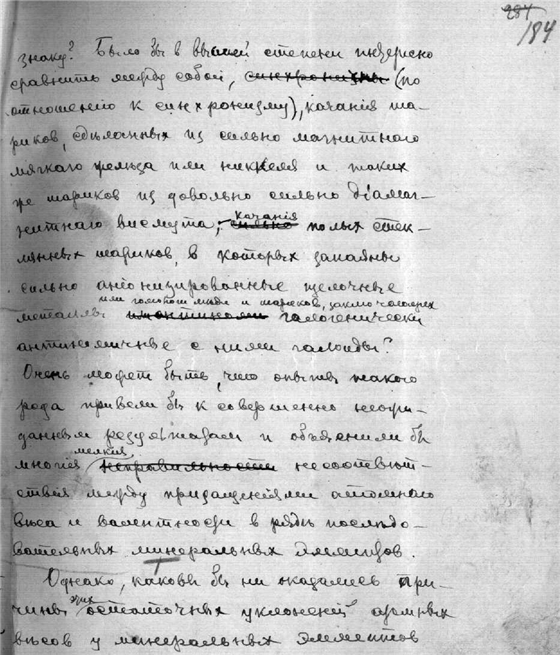 284
184
знаку? Было бы в высшей степени интересно
сравнить между собой, синхронизмы (по
отношенію к синхронизму), качанія ша-
риков, сделанных из сильно магнитнаго
мягкаго железа или никкеля и таких
же шариков из довольно сильно діамаг-
нитнаго висмута; качанія сильно полых стек-
лянных шариков, в которых запаяны
сильно аніонизированные щелочные
металлы или и шариков, заключающих
антиномичные с ними галоиды?
Очень может быть, что опыты такого
рода привели бы к совершенно неожи-
данным результатам и объяснили бы
многія мелкія неправильности несоответ-
ствія между приращеніями атомнаго
веса и валентности в рядах последо-
вательных минеральных элементов.
Однако, каковы бы ни оказались при-
чины этих остаточных уклоненій атомных
весов у минеральных элементов